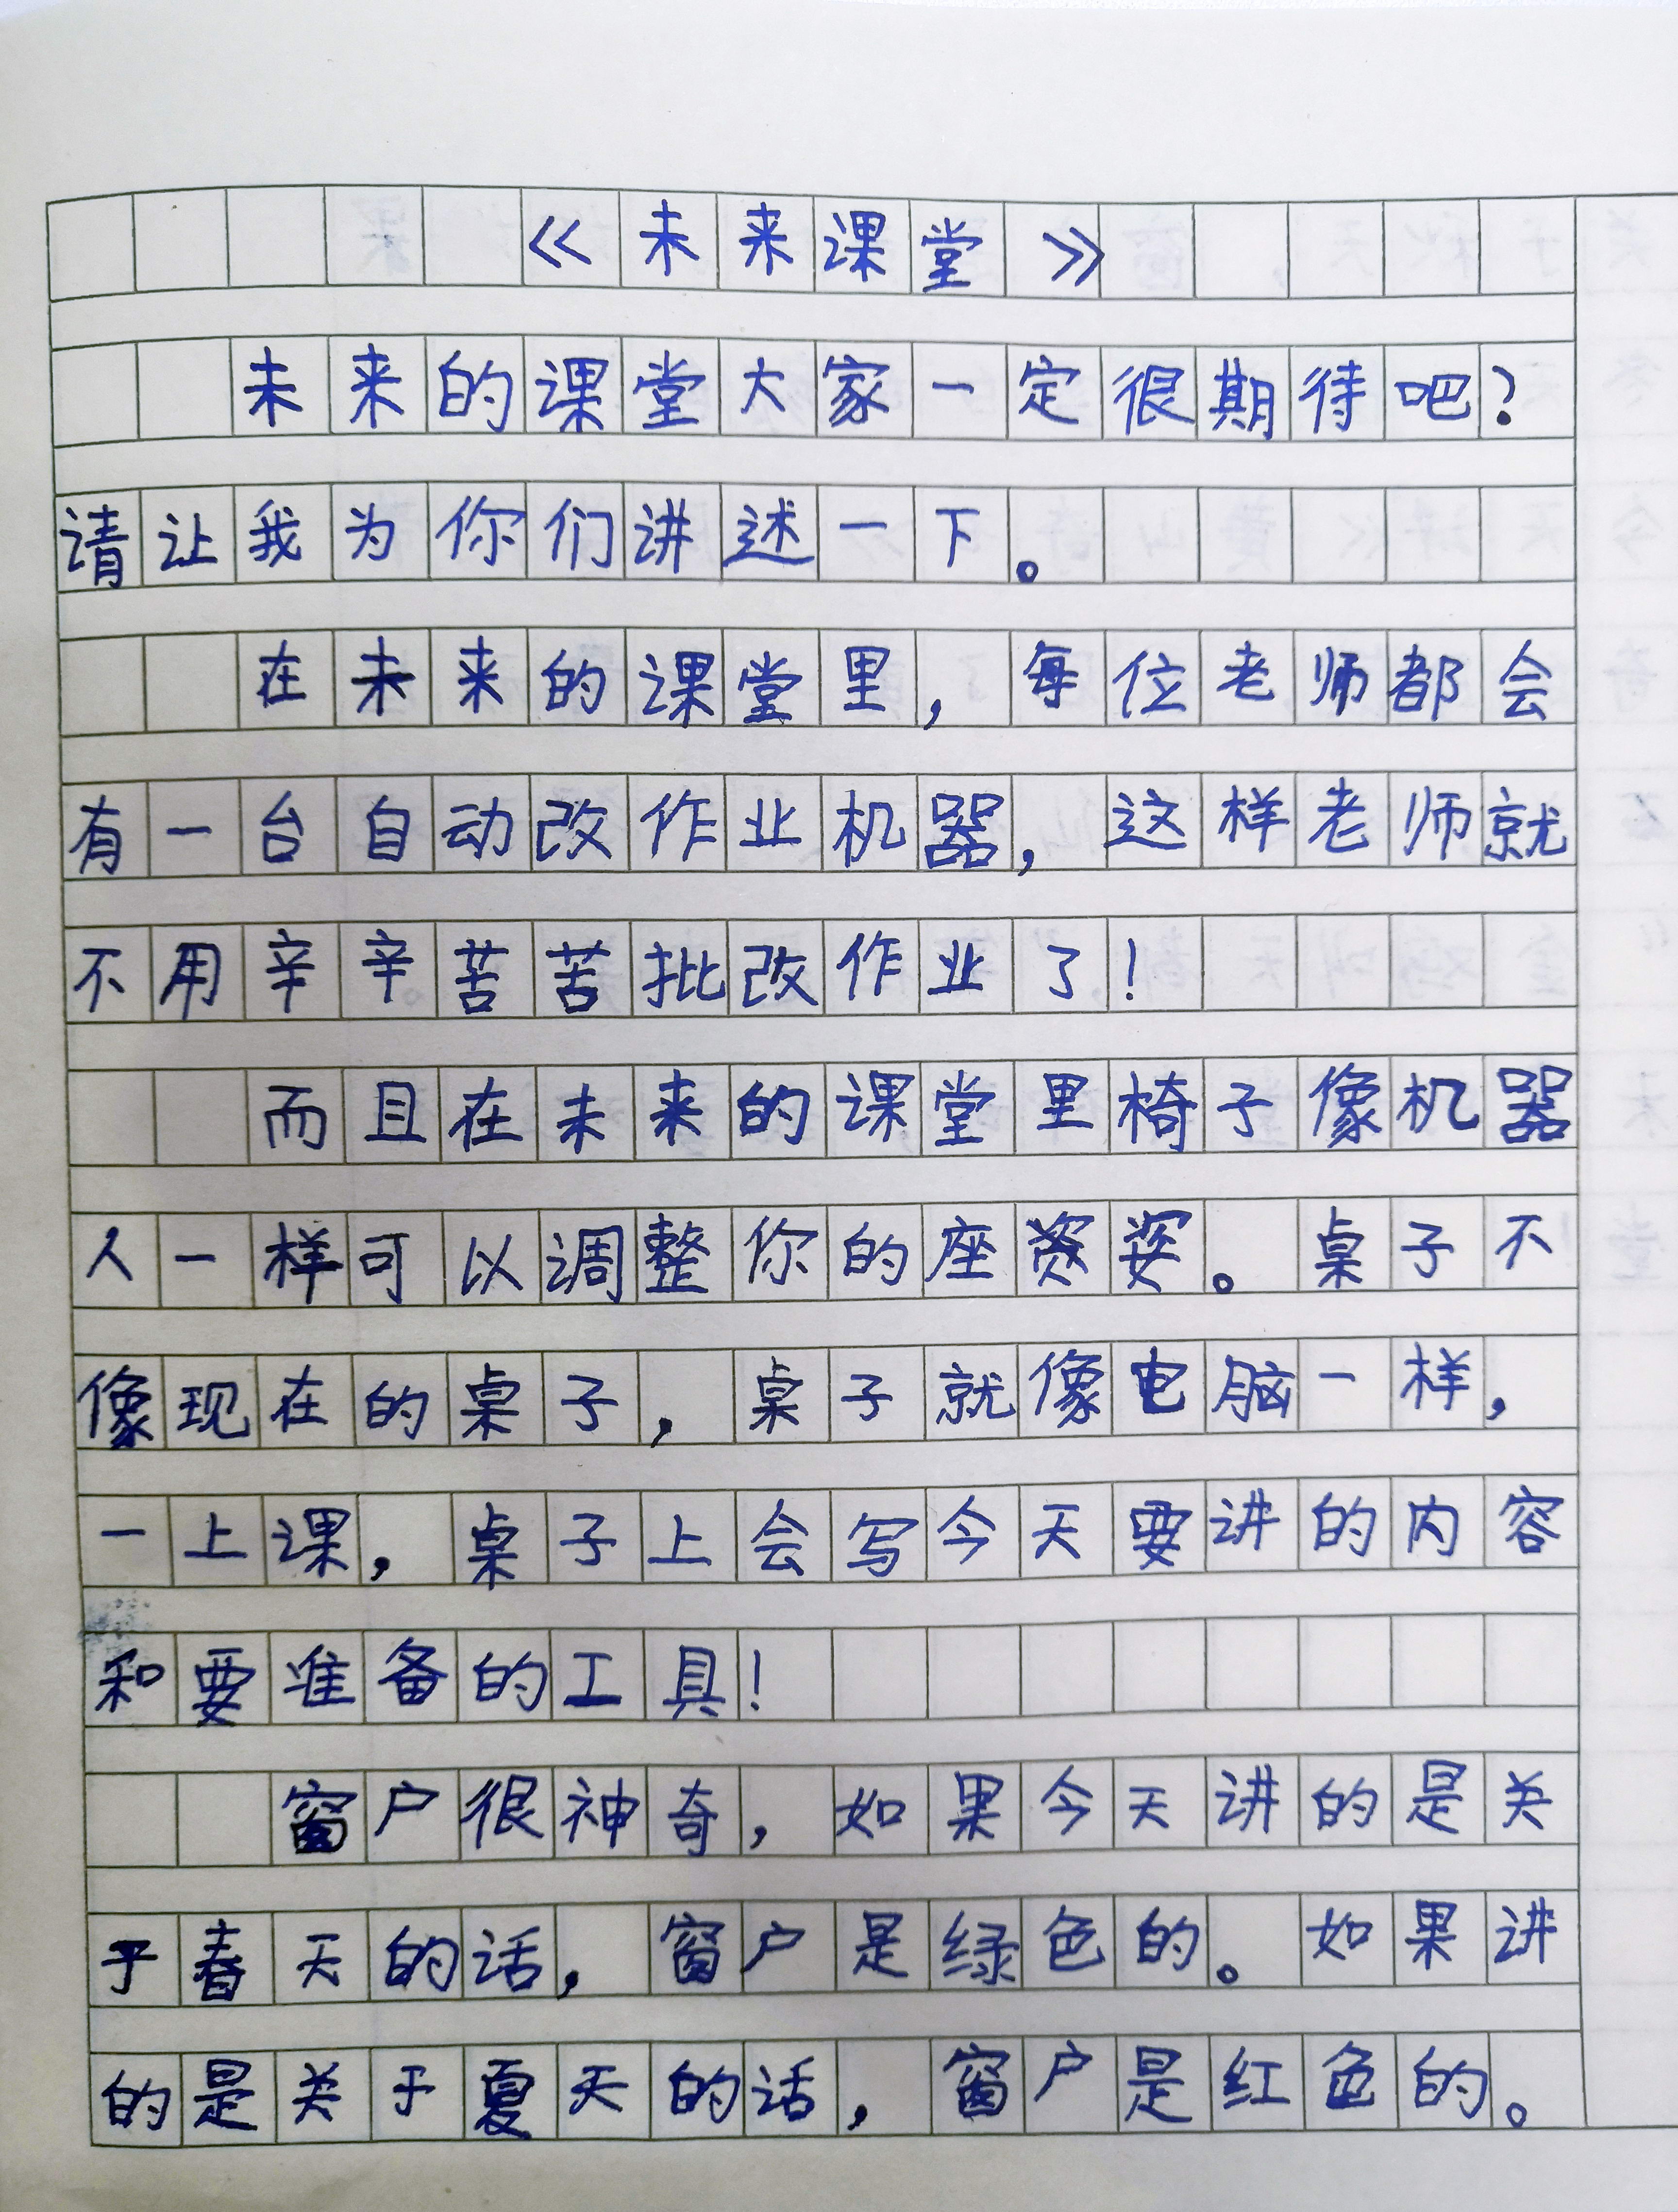 《未来课堂》
未来的课堂大家一定很期待吧?
请让我为你们讲述一下。
在未来的课堂里,每位老师都会
有一台自动改作业机器,这样老师就
不用辛辛苦苦批改作业了!
而且在未来的课堂里椅子像机器
人一样可以调整你的座姿。桌子不
像现在的桌子,桌子就像电脑一样,
一上课,桌子上会写今天要讲的内容
和要准备的工具!
窗户很神奇,如果今天讲的是关
于春天的话,窗户是绿色的。如果讲
的是关于夏天的话,窗户是红色的。